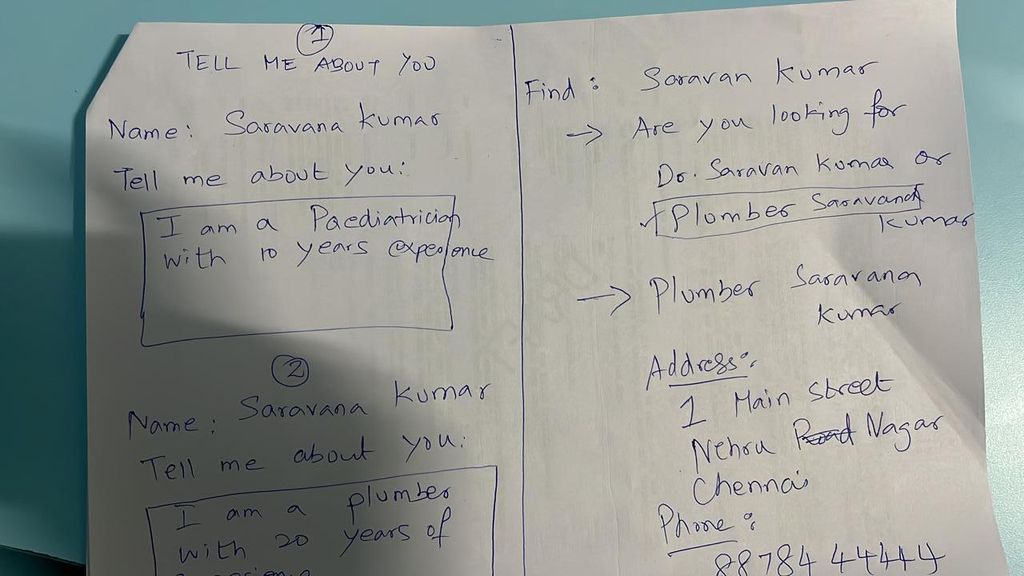 1
TELL ME ABOUT YOU
Name: Saravana Kumar
Tell me about you:
I am a Paediatrician
with 10 years experience
2
Name: Saravana Kumar
Tell me about you:
I am a plumber
with 20 years of
Find: Saravan Kumar
→ Are you looking for
Dr. Saravan Kumar or
✓ Plumber Saravana
Kumar
→ Plumber Saravana
Kumar
Address:
1 Main Street
Nehru Road Nagar
Chennai
Phone:
88784 44444